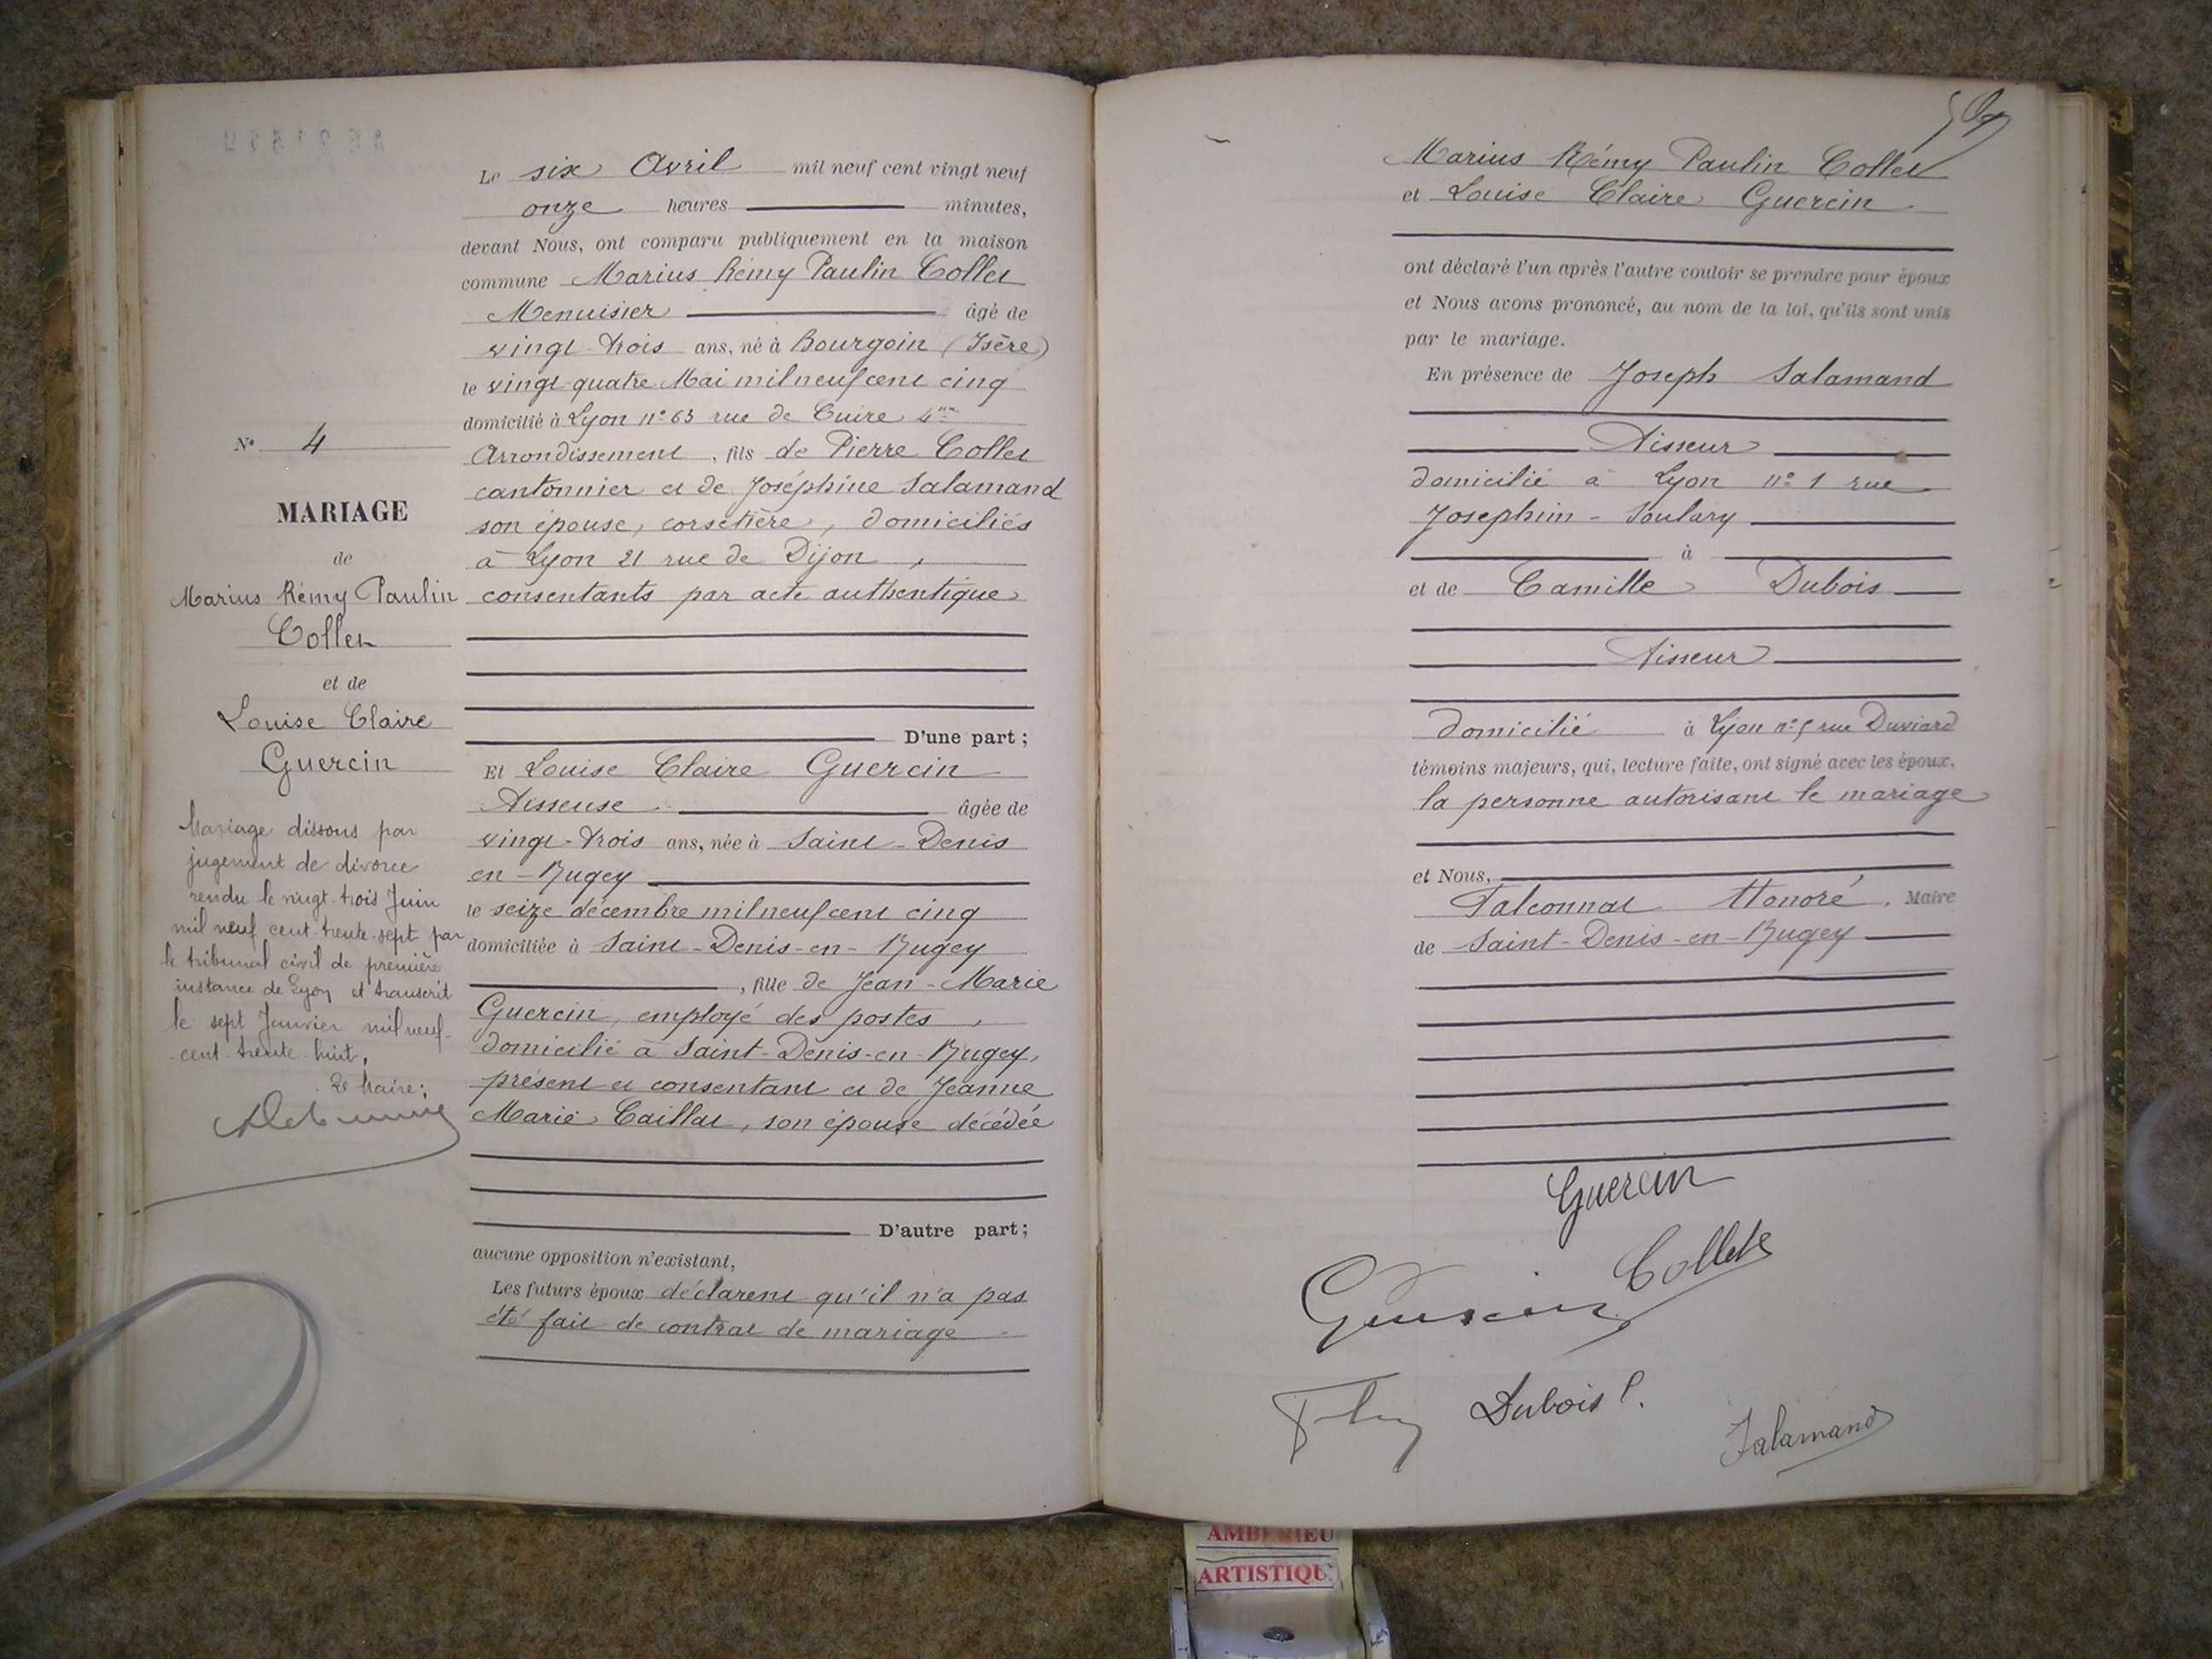 Le six Avril mil neuf cent vingt neuf
onze heures minutes,
devant Nous, ont comparu publiquement en la maison
commune Marius Rémy Paulin Collet
Menuisier âgé de
vingt-trois ans, né à Bourgoin (Isère)
le vingt-quatre Mai mil neuf cent cinq
domicilié à Lyon n° 63 rue de Cuire 4me
Arrondissement, fils de Pierre Collet
cantonnier et de Joséphine Salamand
son épouse, corsetière, domiciliés
à Lyon 21 rue de Dijon,
consentants par acte authentique
D'une part;
Et Louise Claire Guercin
Tisseuse âgée de
vingt-trois ans, née à Saint-Denis
en-Bugey
le seize décembre mil neuf cent cinq
domiciliée à Saint-Denis-en-Bugey
, fille de Jean-Marie
Guercin, employé des postes,
domicilié à Saint-Denis-en-Bugey,
présent et consentant et de Jeanne
Marie Caillat, son épouse décédée
D'autre part;
aucune opposition n'existant,
Les futurs époux déclarent qu'il n'a pas
été fait de contrat de mariage
N° 4
MARIAGE
de
Marius Rémy Paulin
Collet
et de
Louise Claire
Guercin
Mariage dissous par
jugement de divorce
rendu le vingt-trois Juin
mil neuf cent-trente-sept par
le tribunal civil de première
instance de Lyon et transcrit
le sept Janvier mil neuf-
cent-trente-huit,
Le Maire:
Marius Rémy Paulin Collet
et Louise Claire Guercin
ont déclaré l'un après l'autre vouloir se prendre pour époux
et Nous avons prononcé, au nom de la loi, qu'ils sont unis
par le mariage.
En présence de Joseph Salamand
Tisseur
domicilié à Lyon n° 1 rue
Josephin-Soulary
à
et de Camille Dubois
Tisseur
domicilié à Lyon n° 5 rue Duviard
témoins majeurs, qui, lecture faite, ont signé avec les époux,
la personne autorisant le mariage
et Nous,
Falconnat Honoré, Maire
de Saint-Denis-en-Bugey
Guercin
Collet
Guercin
Dubois C.
Salamand
AMBERIEU
ARTISTIQU